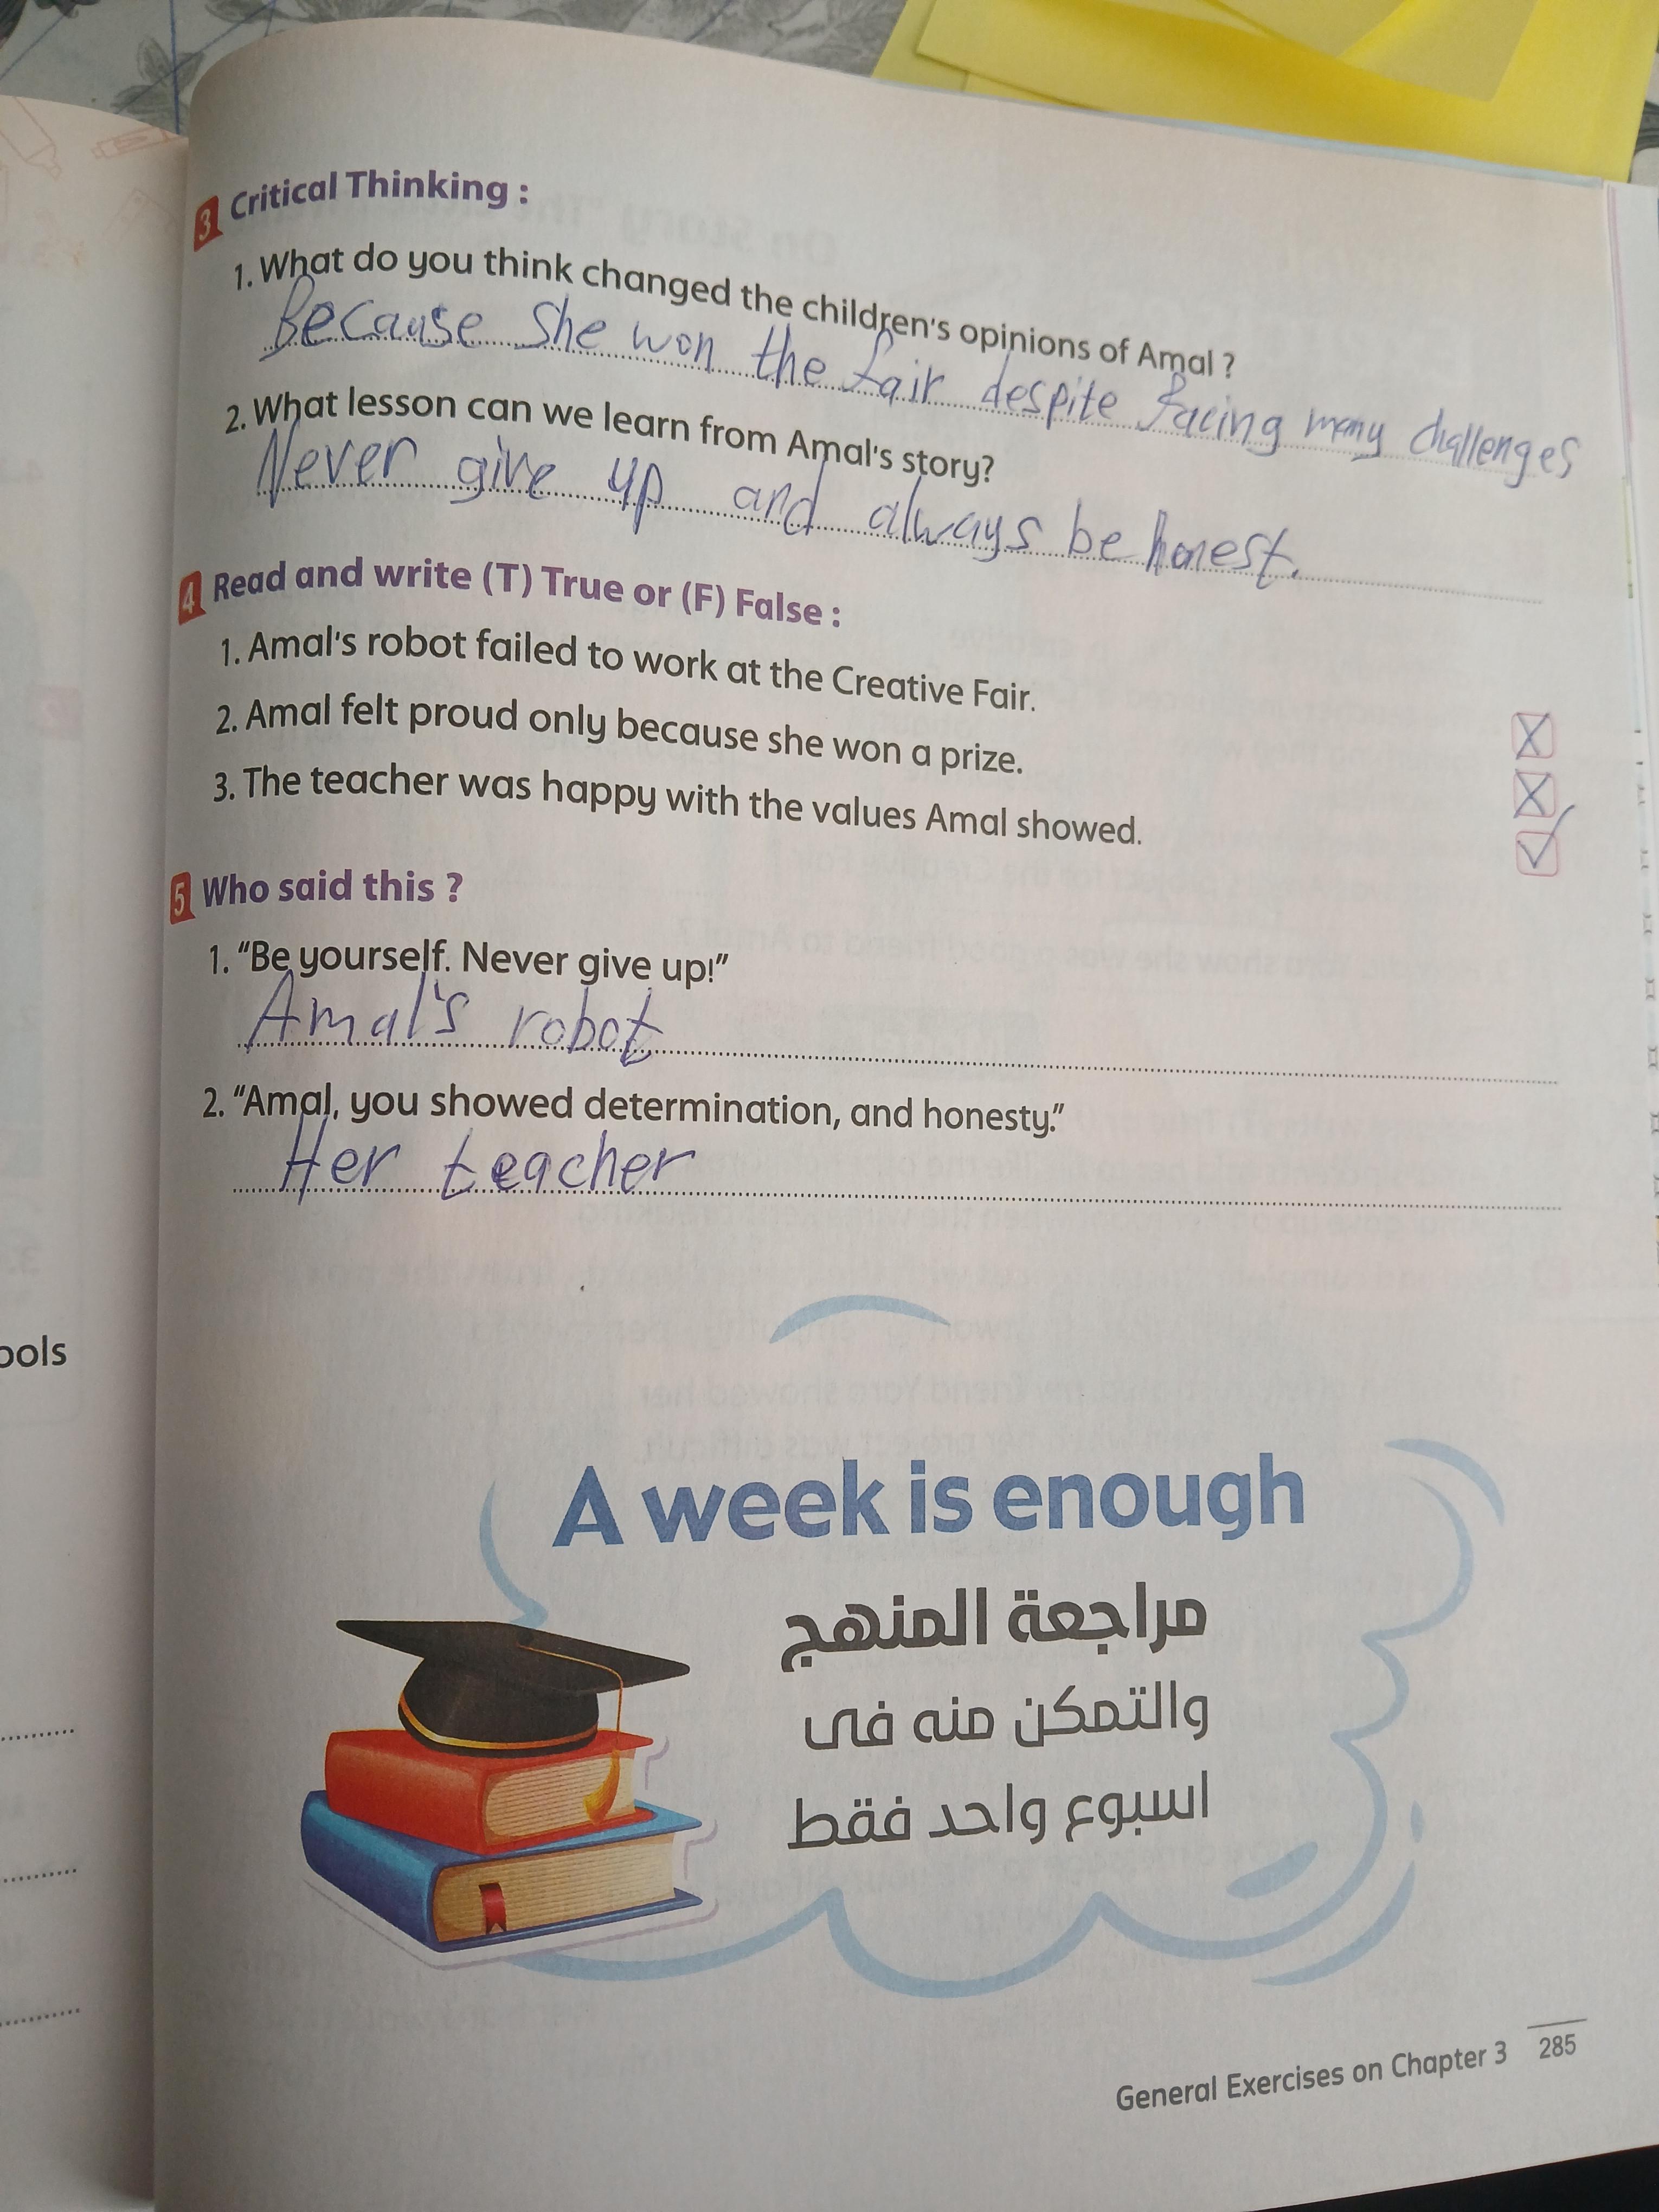 3 Critical Thinking :
1. What do you think changed the children's opinions of Amal ?
Because She won the fair despite facing many challenges
2. What lesson can we learn from Amal's story?
Never give up and always be honest.
4 Read and write (T) True or (F) False :
1. Amal's robot failed to work at the Creative Fair. X
2. Amal felt proud only because she won a prize. X
3. The teacher was happy with the values Amal showed. ✓
5 Who said this ?
1. "Be yourself. Never give up!"
Amal's robot
2. "Amal, you showed determination, and honesty."
Her teacher
ools
A week is enough
مراجعة المنهج
والتمكن منه فى
اسبوع واحد فقط
General Exercises on Chapter 3 285